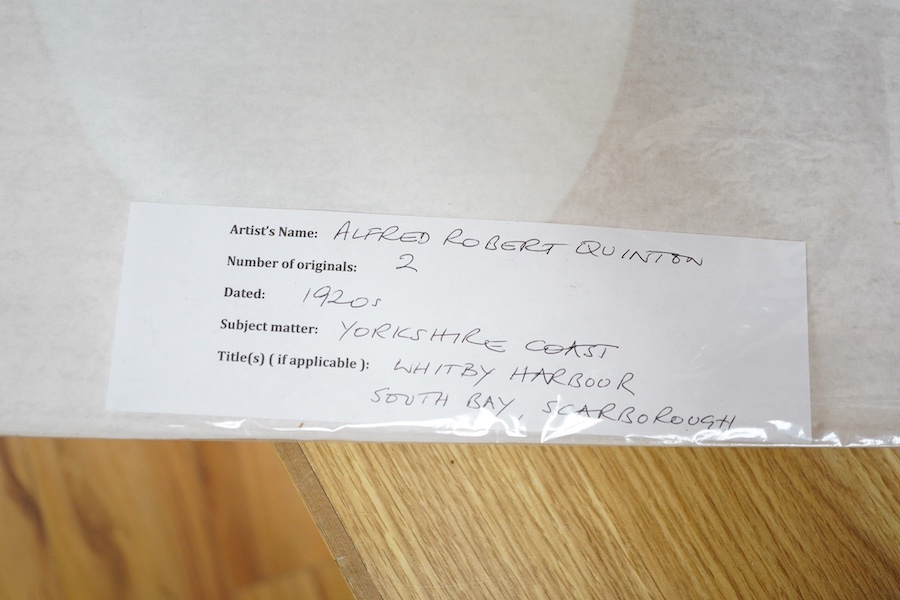 Artist's Name: ALFRED ROBERT QUINTON
Number of originals: 2
Dated: 1920s
Subject matter: YORKSHIRE COAST
Title(s) ( if applicable ): WHITBY HARBOUR
SOUTH BAY, SCARBOROUGH